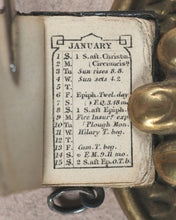 JANUARY
1 S. 1 S. aft. Christm.
2 M. Circumcis?
3 Tu Sun rises 8.8
4 W. Sun sets 4.
5 T.
6 F. Epiph. Twel. day
7 S.
8 S. 1 S. aft Epiph.
9 M. Fire Insur? exp
10 Tu Plough Mon.
11 W. Hilary T. beg.
12 T.
13 F. Cam. T. beg.
14 S. F.M. 9.11 mo.
15 S. 2 S. aft Ep. O.T.